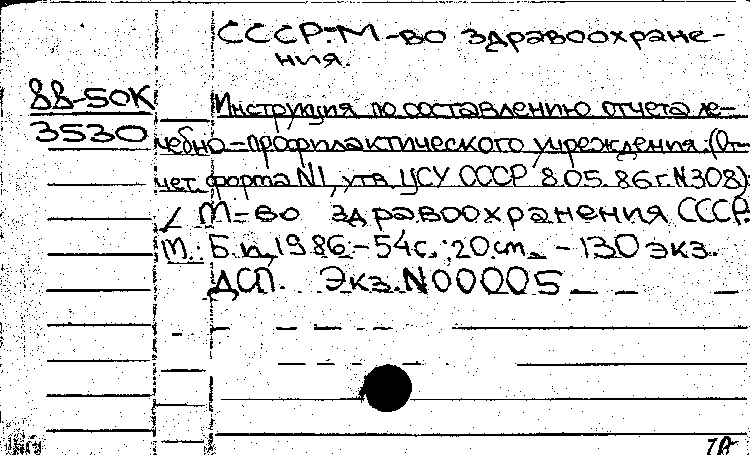 СССР. М-во здравоохране-
ния.
88-50К
3530
Инструкция по составлению отчета ле-
чебно-профилактического учреждения. (От-
чет. форма N1, утв. ЦСУ СССР 8.05.86г. N308)
/ М-во здравоохранения СССР.
М.: Б.и., 1986 - 54с.; 20см. - 130 экз.
ДСП. Экз. N00005